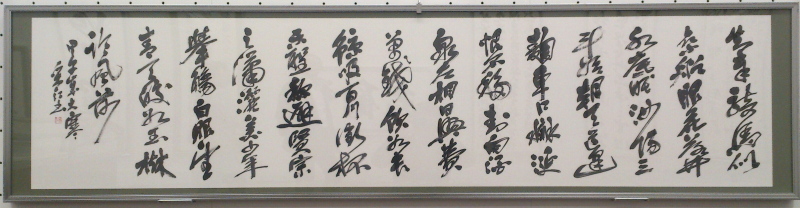 知章騎馬似
乘船眼花落井
水底眠汝陽三
斗始朝天道逢
麹車口流涎
恨不移封向酒
泉左相日興費
萬錢飲如長
鯨吸百川銜杯
樂聖稱避賢宗
之瀟灑美少年
舉觴白眼望
青天皎如玉樹
臨風前
大寒